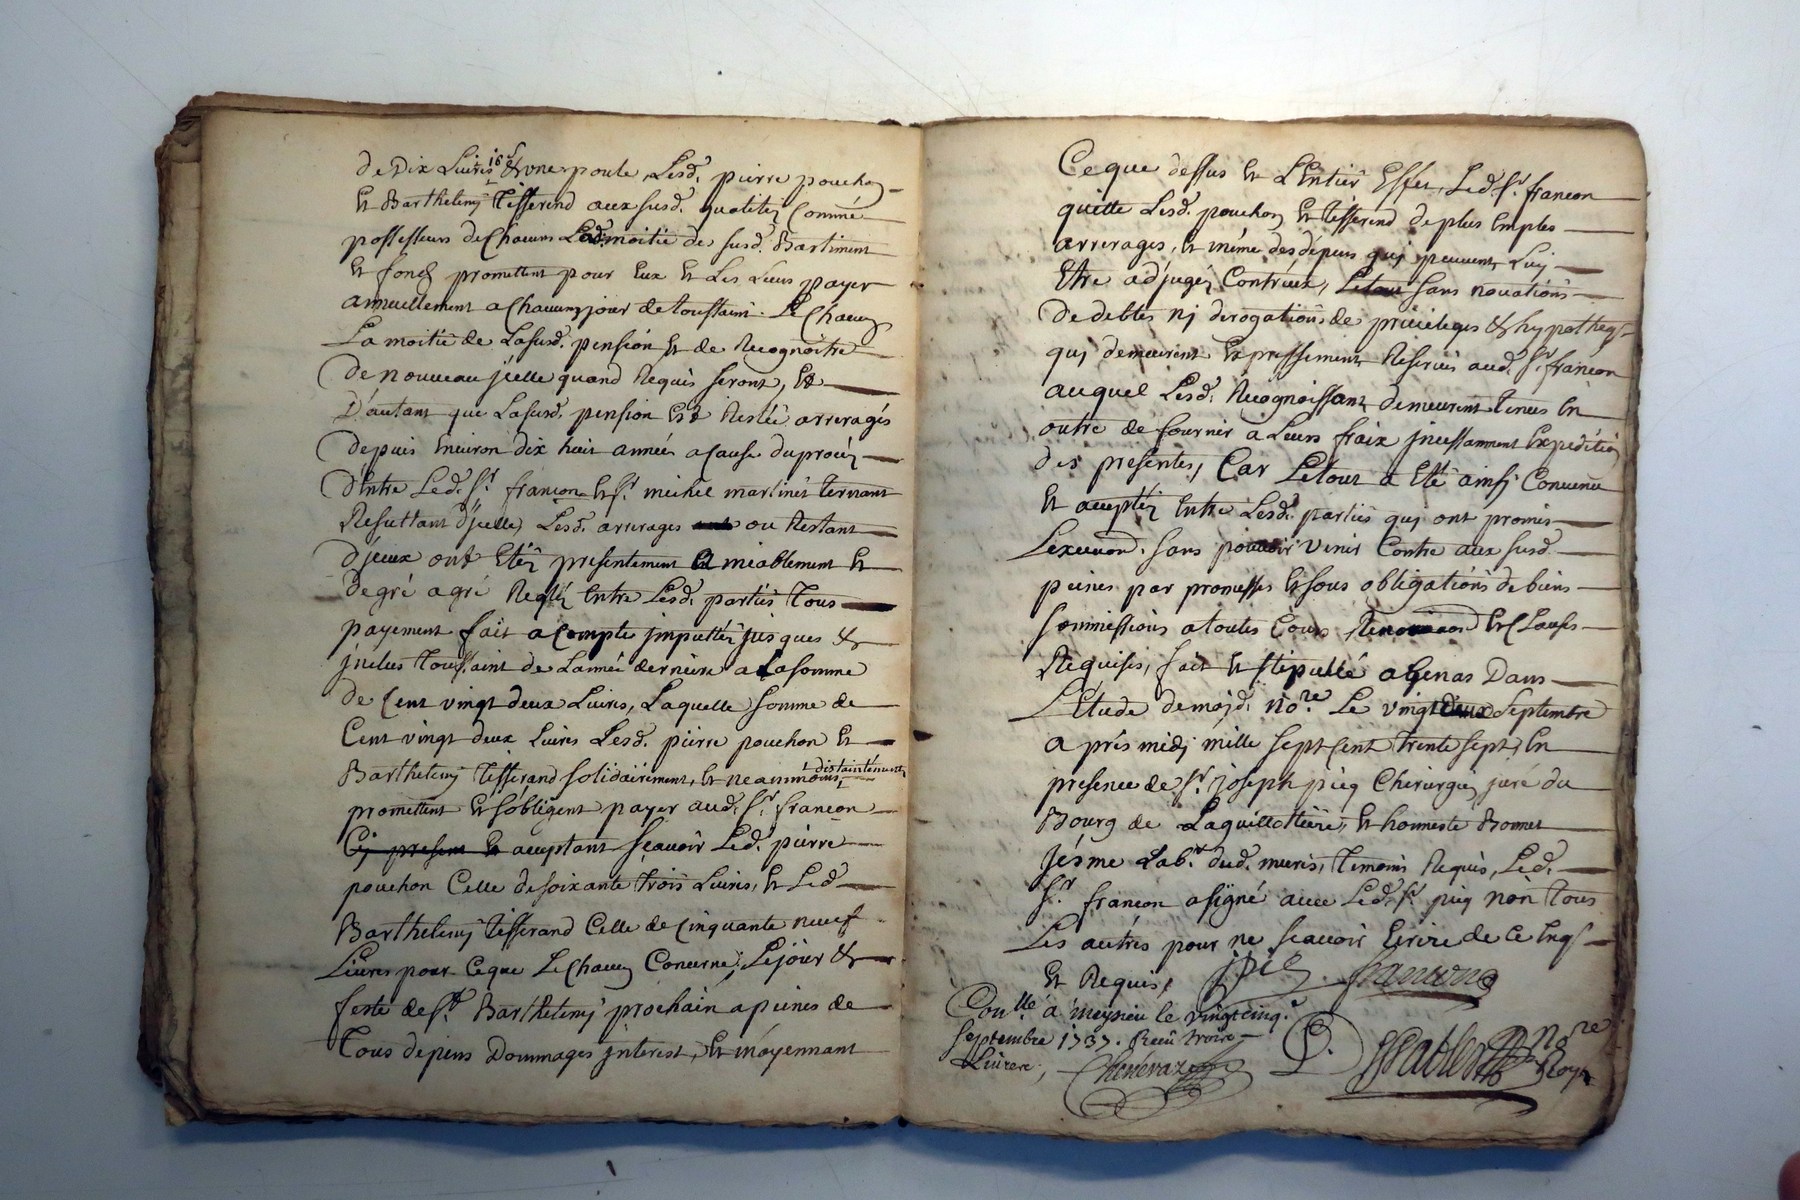 de Dix Livres 10s & une poule, Lesd. pierre pouchon
Et Barthelemy Tisserend aux susd. qualitez Comme
possesseurs de Chacuns Lad. moitié des susd. Bastiment
Et fondz promettent pour Eux Et Les Leurs payer
annuellement a Chacuns jour de toussaint. Le Chacun
La moitié de Lasusd. pension Et de Recognoitre
de nouveau jcelle quand Requis seront, Et
D'autant que Lasusd. pension Est Restée arreragés
depuis Environ dix huit année a Cause du procéz
d'Entre Led. Sr. françon Et Sr. michel martines ternant
Resultant d'jcelle, Lesd. arrerages ou Restant
d'jceux ont Etéz presentement Amiablement Et
de gré a gré Reglés Entre Lesd. partiés tous
payement fait a Compte jmputtéz jusques &
jnclus Toussaint de L'année derniere a La somme
de Cent vingt deux Livres, Laquelle somme de
Cent vingt deux Livres Lesd. pierre pouchon Et
Barthelemy Tisserand solidairement, Et neammoins distaintement
promettent Et s'obligent payer aud. Sr. françon
Cy present Et acceptant sçavoir Led. pierre
pouchon Celle de soixante trois Livres, Et Led.
Barthelemy Tisserand Celle de Cinquante neuf
Livres pour Ceque Le Chacun Concerne, Le jour &
feste de St. Barthelemy prochain a peines de
Tous depens Dommages jnterest, Et moyennant
Ceque dessus Et L'Entier Effet, Led. Sr. françon
quitte Lesd. pouchon Et Tisserend de plus amples
arrerages, Et même des dépens quj peuvent Luy
Etre adjugéz Contr'eux, Letout sans novations
De debtes nj derogations de privileges & hypotheq.
quj demeurent Expressement Reservés aud. Sr. françon
auquel Lesd. Recognoissant demeurent tenus En
outre de fournir a Leurs fraix jncessamment Expedition
des presentes, Car Letout a Eté ainsj Convenu
Et acceptéz Entre Lesd. partiés quj ont promis
L'execuon. sans pouvoir venir Contre aux susd.
peines par promesses Et sous obligations de biens
sommissions a toutes Cours Et Clauses
Requises, fait Et stipullé a Genas Dans
L'Etude de moyd. no.re Le vingt deux Septembre
a prés midj mille sept Cent trente sept, En
presence de Sr. joseph piég Chirurgien juré du
Bourg de Laguillottiére, Et honneste Bonnet
jésme Lab.r dud. mures, temoins Requis, Led.
Sr. françon a signé avec Led. Sr. piég non tous
Les autrés pour ne sçavoir Ecrire de ce Enqs
Et Requis, j piég françon
Con.lle á meysieu le vingtcinq.e
Septembre 1737. Receu troise
Livres, Chenevaz
No.re Royal